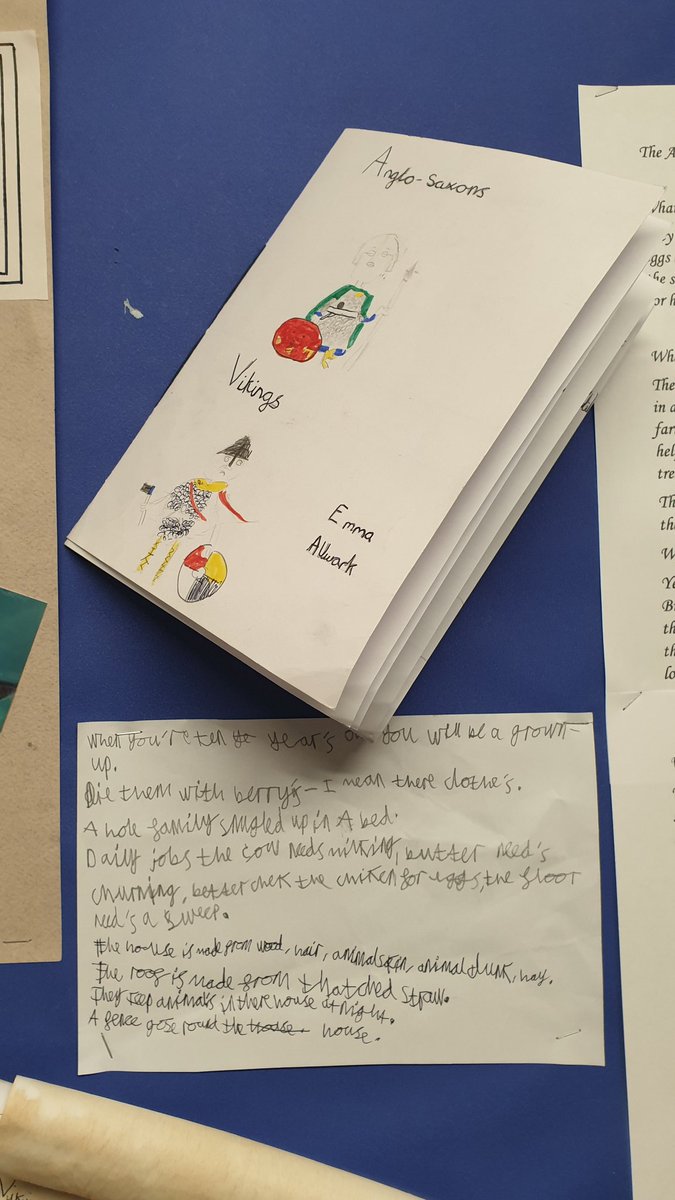 Anglo-Saxons
Vikings
Emma
Allwark
The A
What
eggs
the s
or h
Wh
The
in a
far
hel
tre
Th
the
W
Ye
B
th
th
lo
When you're ten year's old you will be a grown-
up.
Die them with berry's - I mean there clothe's.
A hole family snugled up in A bed.
Daily jobs the cow needs milking, butter need's
churning, better chek the chiken for eggs, the floor
need's a sweep.
The house is made from wood, hair, animal skin, animal dunk, hay.
The roof is made from thatched straw.
They keep animals in there house at night.
A fence gose round the house.